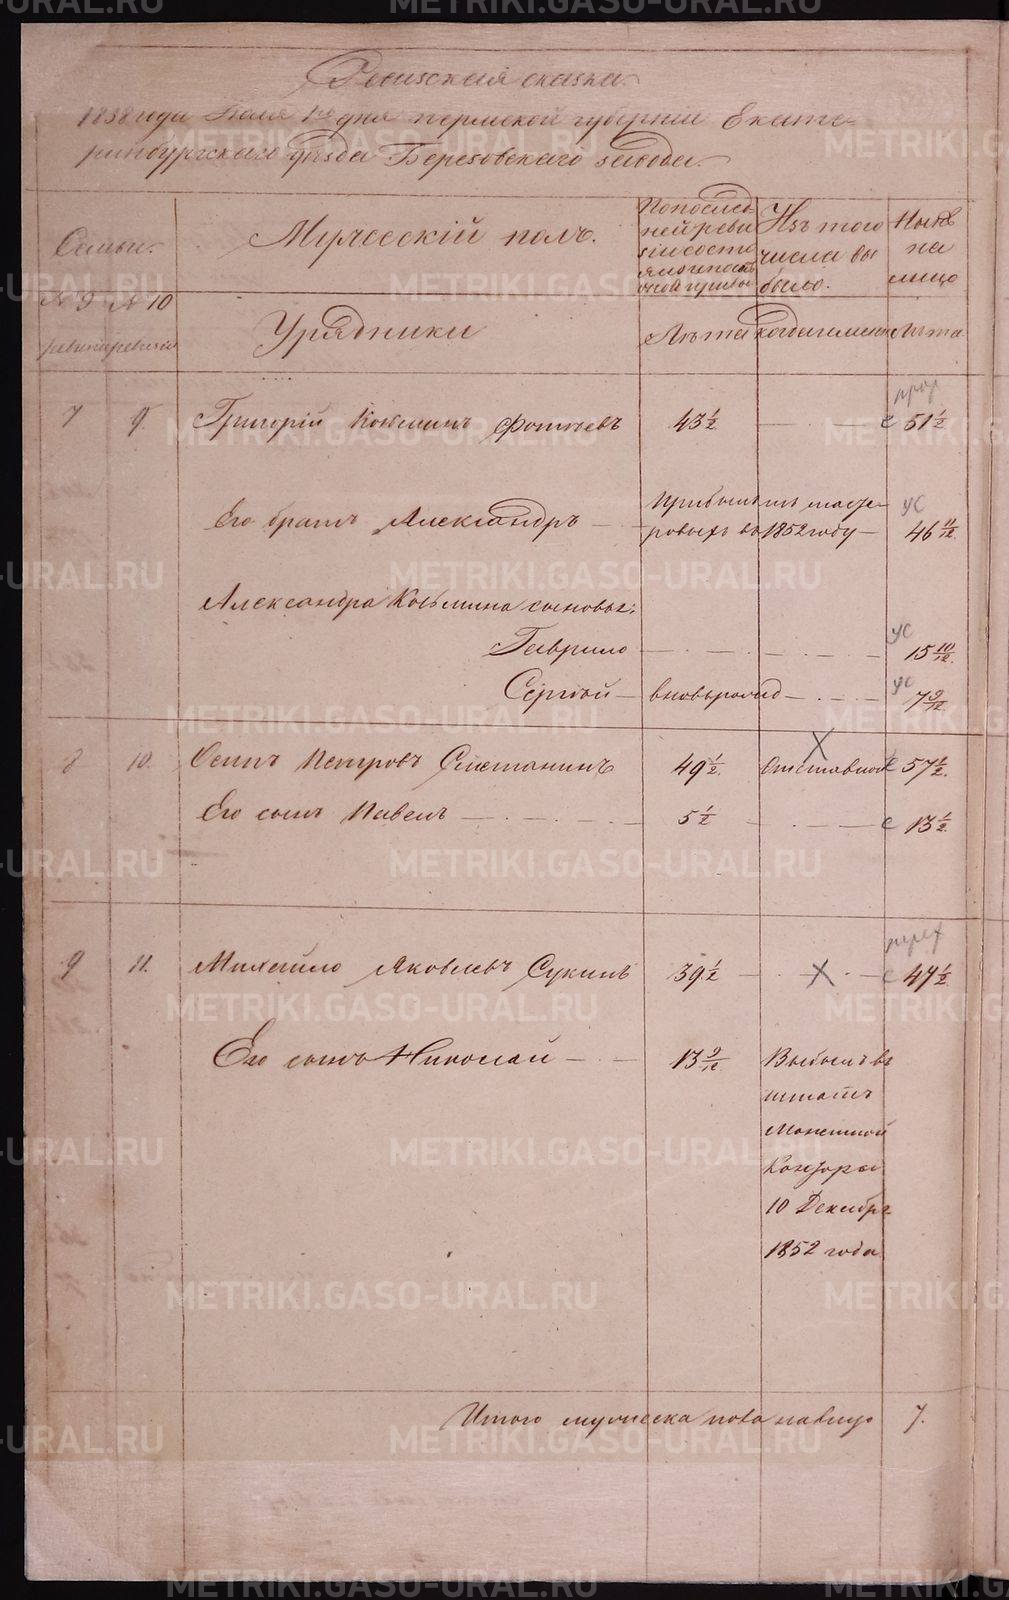 Ревизская сказка
1858 года Июля 1го дня Пермской губернии Екате-
ринбургского уезда Березовского завода.
Семьи.
Мужеский полъ.
По послед-
ней реви-
зии состо-
Изъ того
числа вы-
было.
Ныне
на
лицо
№ 9 № 10
ревизии
Урядники
Лета
когда именно
Лета
7 9. Григорiй Козьминъ Фотеевъ 43 1/2 с 51 1/2
Его братъ Александръ Прибылъ изъ масте-
ровыхъ въ 1852 году 46 11/12
ус
Александра Козьмина сыновья:
Гаврило 15 10/12.
ус
Сергей вновьрожд 7 9/12
ус
8 10. Осипъ Петровъ Сметанинъ 49 1/2. Отставной с 57 1/2.
Его сынъ Павелъ 5 1/2 с 13 1/2
9 11. Михайло Яковлевъ Сукинъ 39 1/2 с 47 1/2
Его сынъ Николай 13 9/12 Выбылъ въ
штатъ
Монетной
Конторы
10 Декабря
1852 года
Итого мужеска пола налицо 7.
METRIKI.GASO-URAL.RU